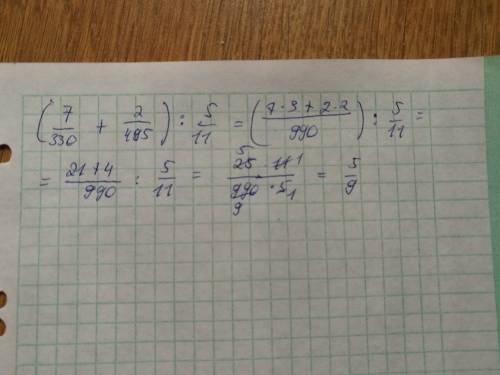 (7/330 + 2/495) : 5/11 = (7·3+2·2/990) : 5/11 =
= 21+4/990 : 5/11 = 5 25 · 11 1/990 · 5 1 9 = 5/9